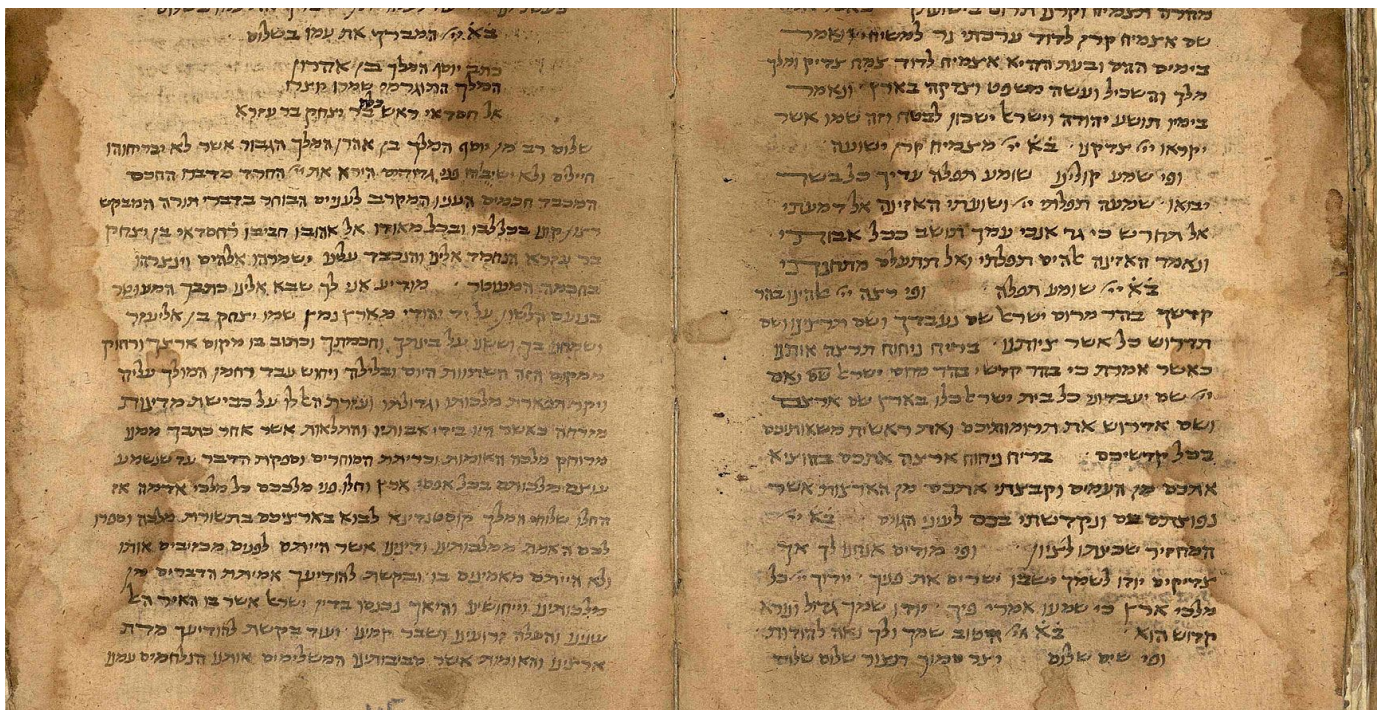 מהרה תצמיח וקרנו תרום
שם אצמיח קרן לדוד ערכתי נר למשיחי ונאמר
בימים ההם ובעת ההיא אצמיח לדוד צמח צדיק ומלך
מלך והשכיל ועשה משפט וצדקה בארץ ונאמר
בימיו תושע יהודה וישרא' ישכון לבטח וזה שמו אשר
יקראו יי' צדקנו בא יי' מצמיח קרן ישועה
ופי שמע קולינו שומע תפלה עדיך כל בשר
יבואו שמעה תפלתי יי' ושועתי האזינה אל דמעתי
אל תחרש כי גר אנכי עמך תושב ככל אבותי
ונאמר האזינה אלהים תפלתי ואל תתעלם מתחנתי
בא יי' שומע תפלה ופי רצה יי' אלהינו בהר
קדשך בהר מרום ישראל שם נעבדך ושם תדרשנו ושם
תדרוש כל אשר ציותנו בריח ניחוח תרצה אותנו
כאשר אמרת כי בהר קדשי בהר מרום ישראל נאם
יי' שם יעבדוני כל בית ישראל כלו בארץ שם ארצם
ושם אדרוש את תרומותיכם ואת ראשית משאותיכם
בכל קדשיכם בריח ניחוח ארצה אתכם בהוציא
אתכם מן העמים וקבצתי אתכם מן הארצות אשר
נפוצתם בם ונקדשתי בכם לעיני הגוים בא יי'
המחזיר שכינתו לציון ופי מודים אנחנו לך אך
צדיקים יודו לשמך ישבו ישרים את פניך יודוך יי' כל
מלכי ארץ כי שמעו אמרי פיך יודו שמך גדול ונורא
קדוש הוא בא יי' הטוב שמך ולך נאה להודות
ופי שים שלום יצר סמוך תצור שלום שלום
בא יי' המברך את עמו בשלום
כתב יוסף המלך בן אהרון
המלך התוגרמי שמרו יוצרו
אל חסדאי ראש כלה בר יצחק בר עזרא
שלום רב מן יוסף המלך בן אהרן המלך הגבור אשר לא יבריחוהו
חיילים ולא ישיבוהו פני גדודים הירא את יי' החרד מדבריו החכם
המכבד חכמים הענו המקרב לעניים הבוחר בדברי תורה המבקש
רצון קונו בכל לבו ובכל מאודו אל אהובו חביבו רחסדאי בן יצחק
בר עזרא הנחמד אלינו והנכבד עלינו ישמרהו אלהים וינצרהו
בחכמה המעוטר מודיע אני לך שבא אלינו כתבך המעוטר
בנועם הלשון על יד יהודי מארץ נמץ שמו יצחק בן אליעזר
ושמחנו בך וששנו על בינתך וחכמתך וכתוב בו מקום ארצך ורחוק
ויקר תפארת מלכותו וגדולתו ועזרת האל לו על כבישת מדינות
מזרחה כאשר היו בידי אבותיו והתלאות אשר אחר כתבך ממנו
מרוחק מלכה האומות וכריתת הסוחרים וספקות הדבר עד שנשמע
עוצם מלכותם בכל אפסי ארץ וחלו פני מלככם כל מלכי אדמה אז
החלו שלוחי המלך קוסטנדינא לבוא בארציכם בתשורת מלכה וספרו
לכם האמת ממלכותינו ודינינו אשר הייתם לפנים מכזיבים אותו
ולא הייתם מאמינים בו ובקשת להודיעך אמיתת הדברים מן
מלכותינו וייחושינו והיאך נכנסו בדין ישראל אשר בו האיר האל
עינינו והפלה זרועינו ושבר קמינו ועוד בקשת להודיעך מדת
ארצינו והאומות אשר סביבותינו המשלימים אותנו הנלחמים עמנו